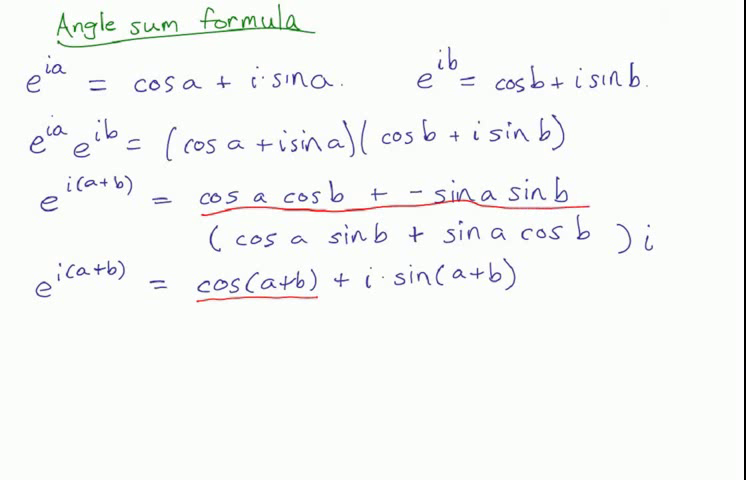 Angle sum formula
e^{ia} = cos a + i·sin a.    e^{ib} = cos b + i sin b.
e^{ia} e^{ib} = (cos a + i sin a)(cos b + i sin b)
e^{i(a+b)} = cos a cos b + - sin a sin b
(cos a sin b + sin a cos b) i
e^{i(a+b)} = cos(a+b) + i·sin(a+b)